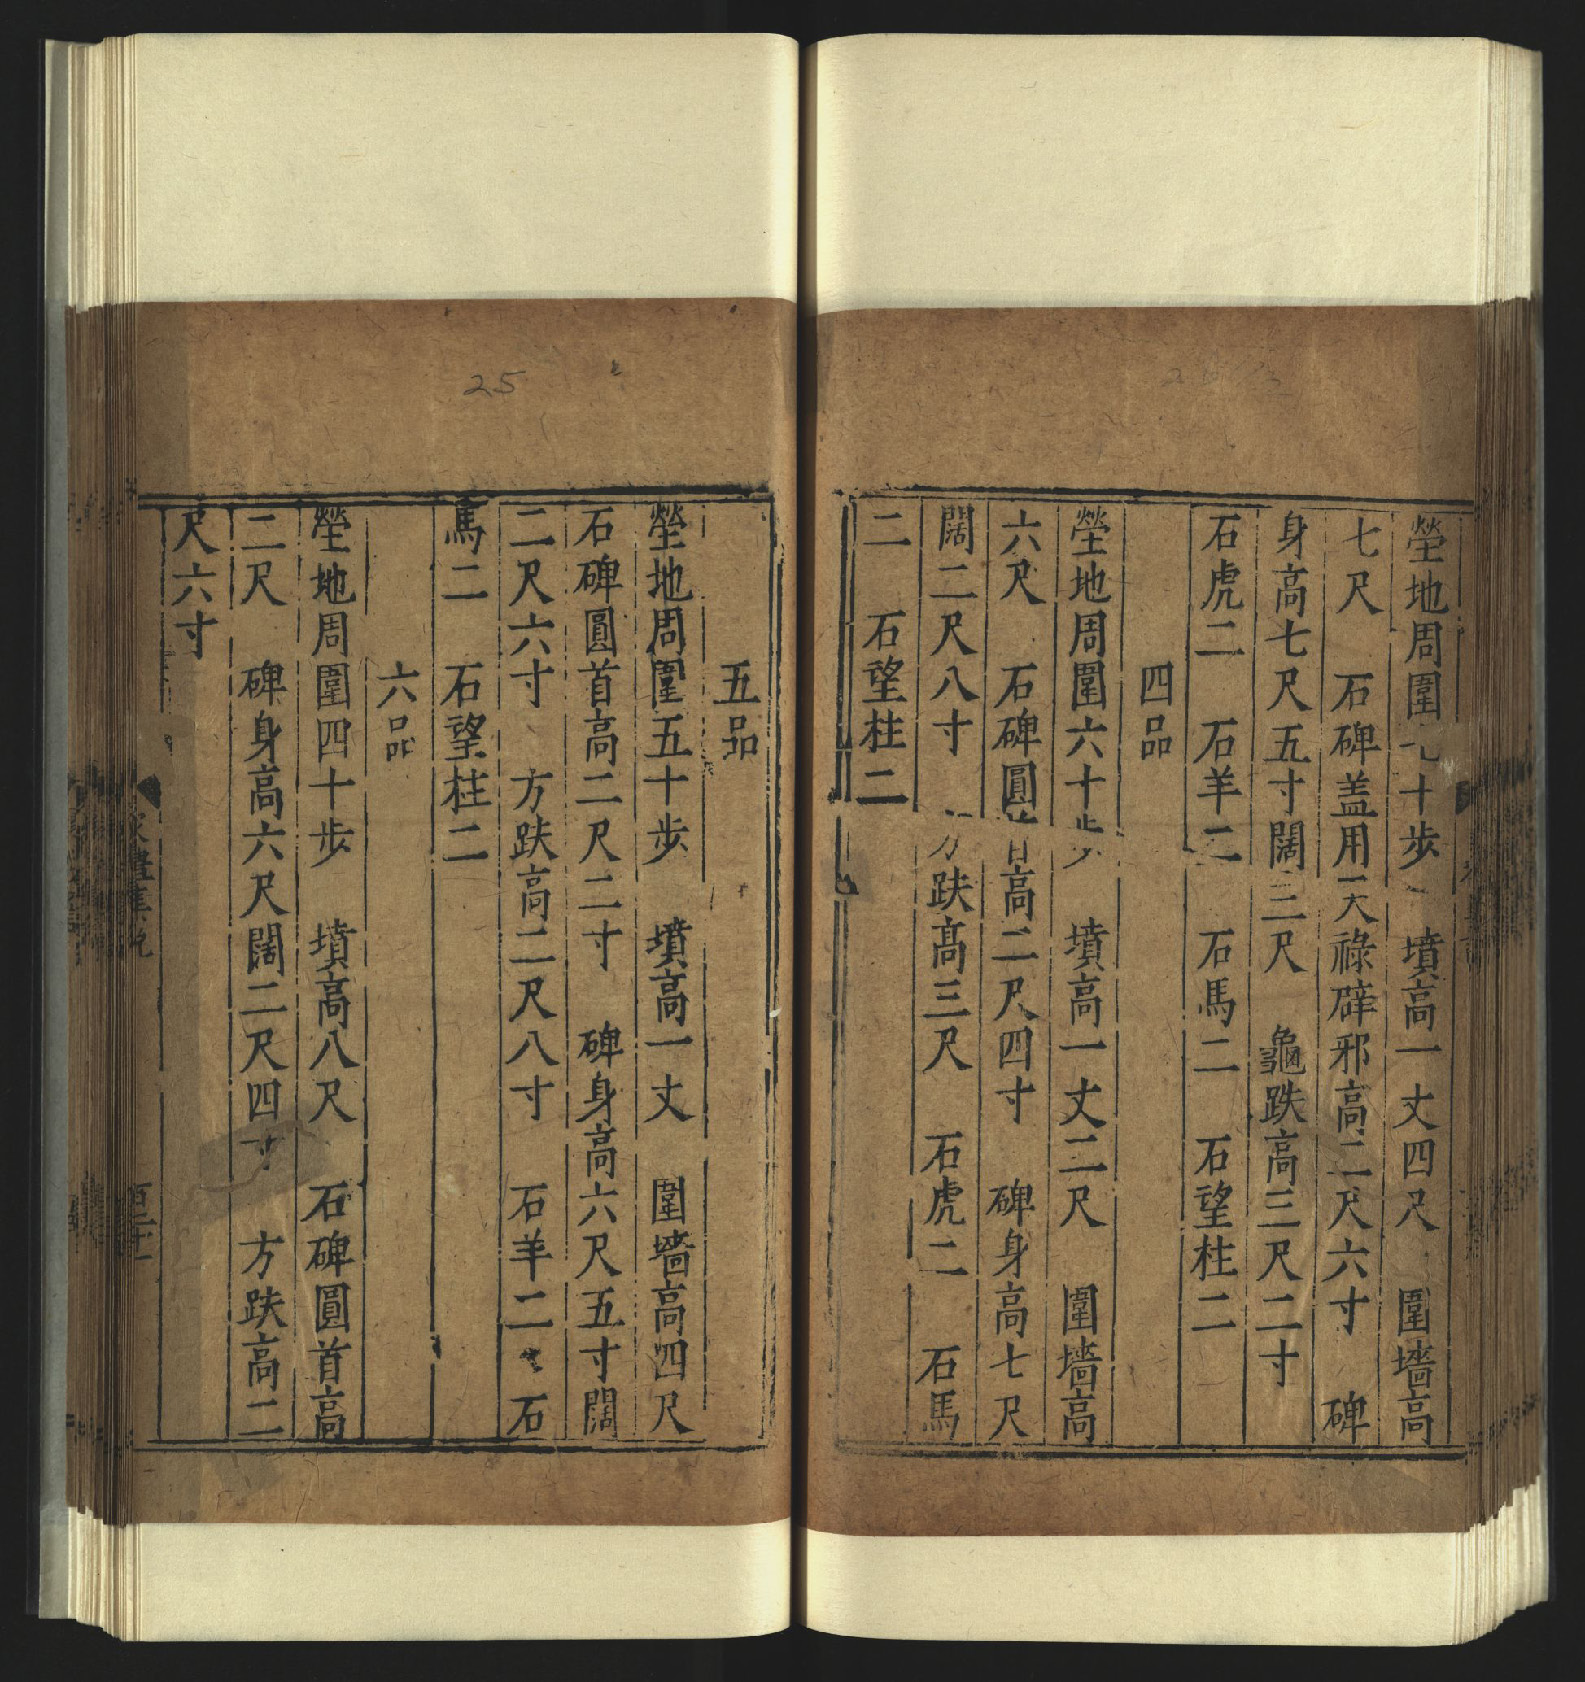 塋地周圍七十步　墳高一丈四尺　圍墻高
七尺　石碑盖用天祿辟邪高二尺六寸　碑
身高七尺五寸闊三尺　龜趺高三尺二寸
石虎二　石羊二　石馬二　石望柱二
四品
塋地周圍六十步　墳高一丈二尺　圍墻高
六尺　石碑圓首高二尺四寸　碑身高七尺
闊二尺八寸　方趺高三尺　石虎二　石馬
二　石望柱二
25
五品
塋地周圍五十步　墳高一丈　圍墻高四尺
石碑圓首高二尺二寸　碑身高六尺五寸闊
二尺六寸　方趺高二尺八寸　石羊二　石
馬二　石望柱二
六品
塋地周圍四十步　墳高八尺　石碑圓首高
二尺　碑身高六尺闊二尺四寸　方趺高二
尺六寸